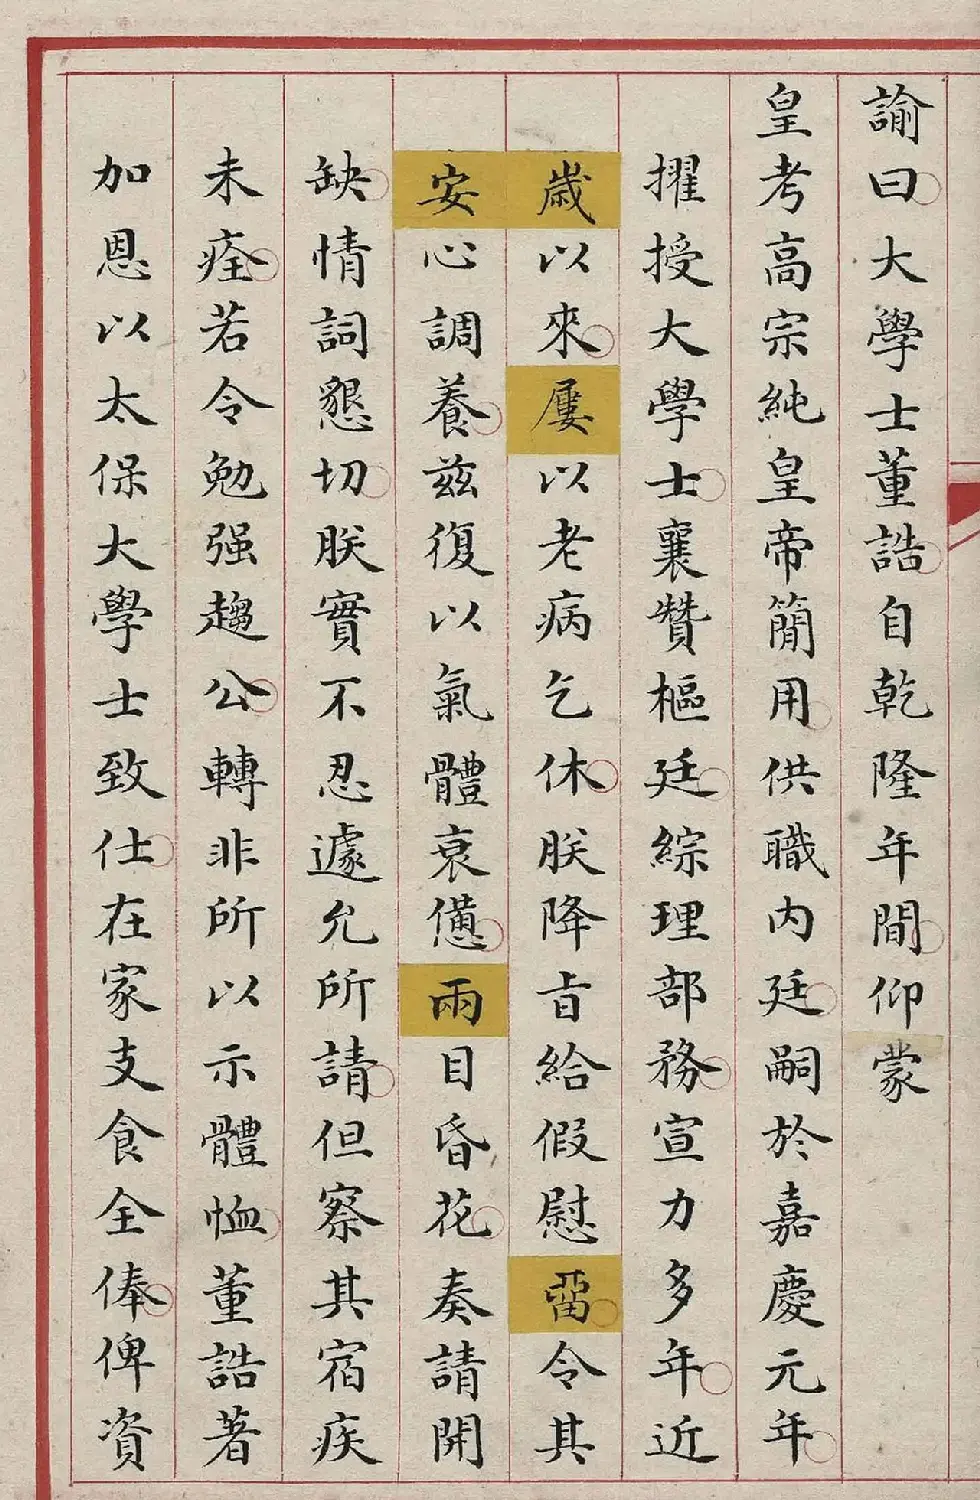 諭曰大學士董誥自乾隆年間仰蒙
皇考高宗純皇帝簡用供職內廷嗣於嘉慶元年
擢授大學士襄贊樞廷綜理部務宣力多年近
歲以來屢以老病乞休朕降旨給假慰畱令其
安心調養茲復以氣體衰憊兩目昏花奏請開
缺情詞懇切朕實不忍遽允所請但察其宿疾
未痊若令勉强趨公轉非所以示體恤董誥著
加恩以太保大學士致仕在家支食全俸俾資